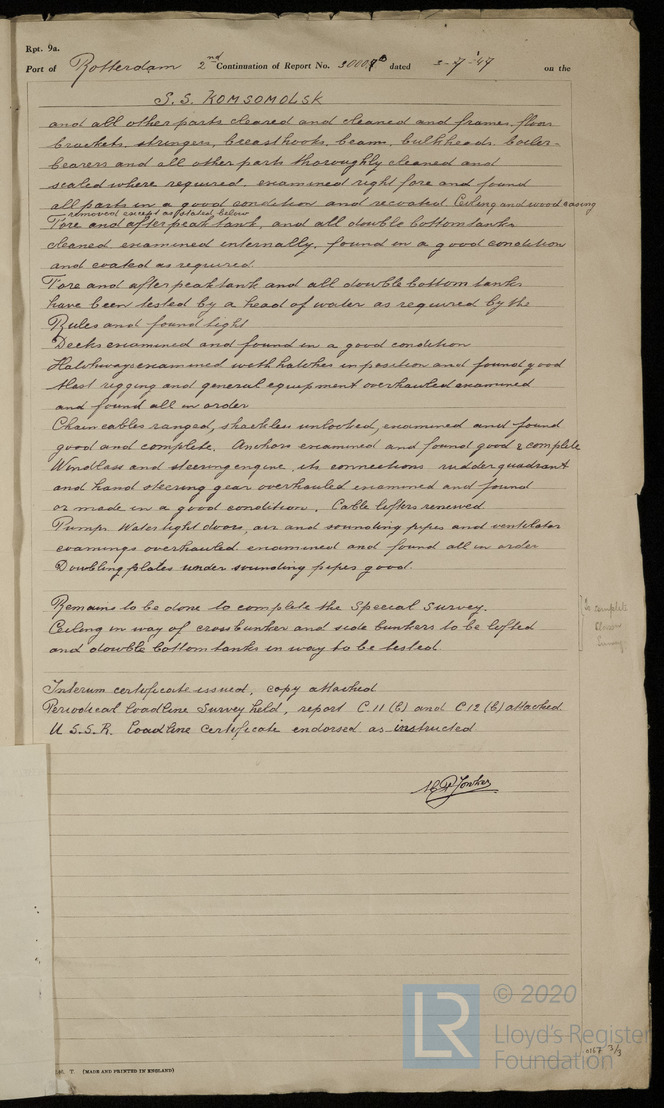 Rpt. 9a.
Port of Rotterdam 2nd Continuation of Report No. dated 3-7-'47 on the
S.S. KOMSOMOLSK
and all other parts cleared and cleaned and frames, floors
brackets, stringers, breasthooks, beam, bulkheads, boiler-
bearers and all other parts thoroughly cleaned and
scaled where required, examined right fore and found
all parts in a good condition and recoated Ceiling and wood casing
removed except as stated below
Fore and after peak tank, and all double bottom tanks
cleaned examined internally, found in a good condition
and coated as required.
Fore and after peak tank and all double bottom tanks
have been tested by a head of water as required by the
Rules and found tight
Decks examined and found in a good condition
Hatchways examined with hatches in position and found good
Mast rigging and general equipment overhauled examined
and found all in order
Chain cables ranged, shackles unlocked, examined and found
good and complete. Anchors examined and found good & complete
Windlass and steering engine, its connections rudder quadrant
and hand steering gear overhauled examined and found
or made in a good condition. Cable lifters renewed
Pumps Watertight doors, air and sounding pipes and ventilator
coamings overhauled examined and found all in order
Doubling plates under sounding pipes good.
Remains to be done to complete the Special Survey.
Ceiling in way of cross bunker and side bunkers to be lifted
and double bottom tanks in way to be tested.
To complete
Survey
Interim certificate issued, copy attached
Periodical Loadline Survey held, report C.11 (b) and C.12 (b) attached.
U.S.S.R. Loadline Certificate endorsed as instructed
© 2020
LR
Lloyd's Register
Foundation
0167 3/3
T. (MADE AND PRINTED IN ENGLAND)